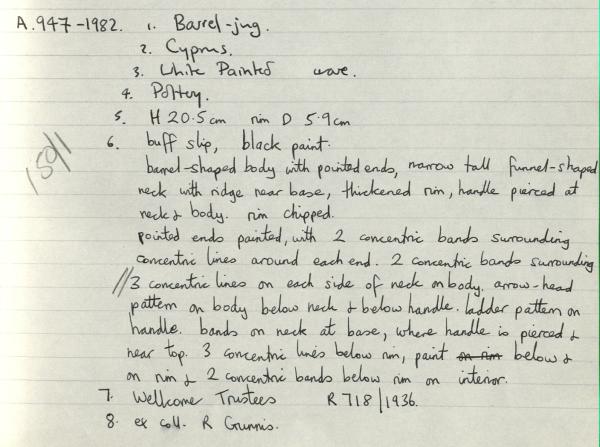 A.947-1982. 1. Barrel-jug.
2. Cyprus.
3. White Painted ware.
4. Pottery.
5. H 20.5cm rim D 5.9cm
6. buff slip, black paint.
barrel-shaped body with pointed ends, narrow tall funnel-shaped
neck with ridge near base, thickened rim, handle pierced at
neck & body. rim chipped.
pointed ends painted, with 2 concentric bands surrounding
concentric lines around each end. 2 concentric bands surrounding
//3 concentric lines on each side of neck on body. arrow-head
pattern on body below neck & below handle. ladder pattern on
handle. bands on neck at base, where handle is pierced &
near top. 3 concentric lines below rim, paint on rim below &
on rim & 2 concentric bands below rim on interior.
7. Wellcome Trustees R718/1936.
8. ex coll. R Gunnis.